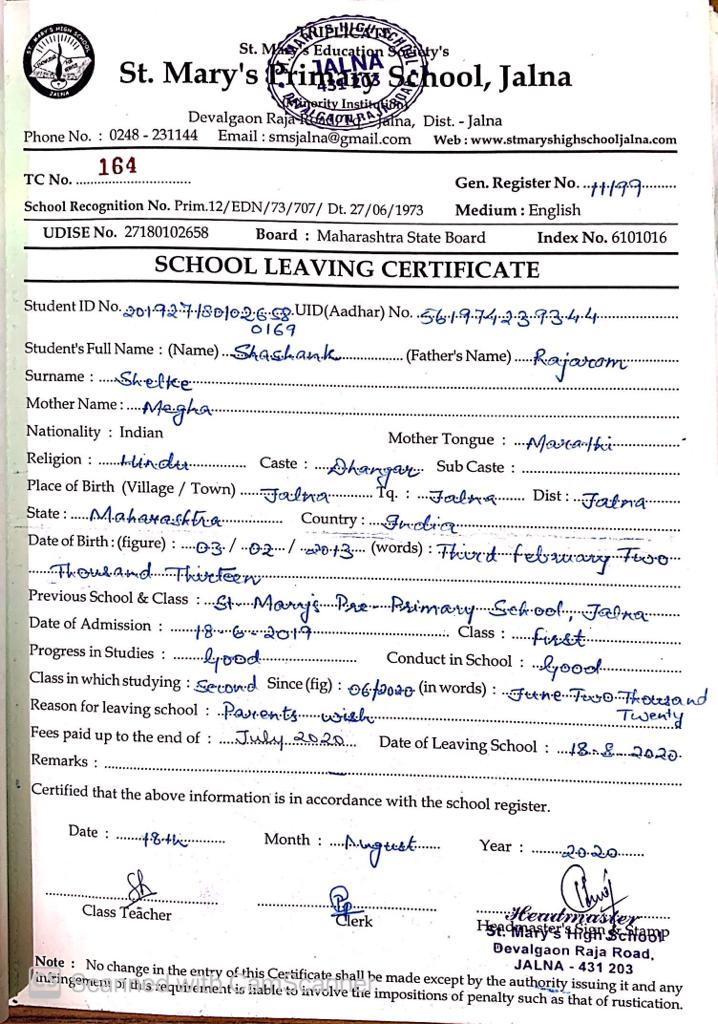 ST. MARY'S HIGH SCHOOL
JALNA
TRIPLICATE
St. Mary's Education Society's
St. Mary's Primary School, Jalna
(Minority Institution)
Devalgaon Raja Road, Jalna, Dist. - Jalna
ST. MARY'S HIGH SCHOOL
JALNA
431 203
DEVALGAON RAJA ROAD
Phone No. : 0248 - 231144 Email : smsjalna@gmail.com Web : www.stmaryshighschooljalna.com
TC No. 164
Gen. Register No. 11/99
School Recognition No. Prim.12/EDN/73/707/ Dt. 27/06/1973 Medium : English
UDISE No. 27180102658 Board : Maharashtra State Board Index No. 6101016
SCHOOL LEAVING CERTIFICATE
Student ID No. 2019271801026580169 UID(Aadhar) No. 561974239344
Student's Full Name : (Name) Shashank (Father's Name) Rajaram
Surname : Shelke
Mother Name : Megha
Nationality : Indian Mother Tongue : Marathi
Religion : Hindu Caste : Dhangar Sub Caste :
Place of Birth (Village / Town) Jalna Tq. : Jalna Dist : Jalna
State : Maharashtra Country : India
Date of Birth : (figure) : 03 / 02 / 2013 (words) : Third february Two
Thousand Thirteen
Previous School & Class : St. Mary's Pre-Primary School, Jalna
Date of Admission : 18-6-2019 Class : first
Progress in Studies : Good Conduct in School : Good
Class in which studying : Second Since (fig) : 06/2020 (in words) : June Two Thousand
Twenty
Reason for leaving school : Parents wish
Fees paid up to the end of : July 2020 Date of Leaving School : 18-8-2020
Remarks :
Certified that the above information is in accordance with the school register.
Date : 18th Month : August Year : 2020
Class Teacher Clerk Headmaster's Sign & Stamp
Headmaster
St. Mary's High School
Devalgaon Raja Road,
JALNA - 431 203
Note : No change in the entry of this Certificate shall be made except by the authority issuing it and any
infringement of this requirement is liable to involve the impositions of penalty such as that of rustication.
CS Scanned with CamScanner